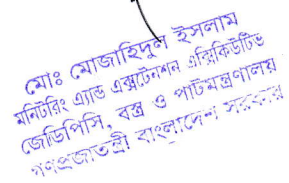 মোঃ মোজাহিদুল ইসলাম
মনিটরিং এ্যান্ড এক্সটেনশন এক্সিকিউটিভ
জেডিপিসি, বস্ত্র ও পাট মন্ত্রণালয়
গণপ্রজাতন্ত্রী বাংলাদেশ সরকার